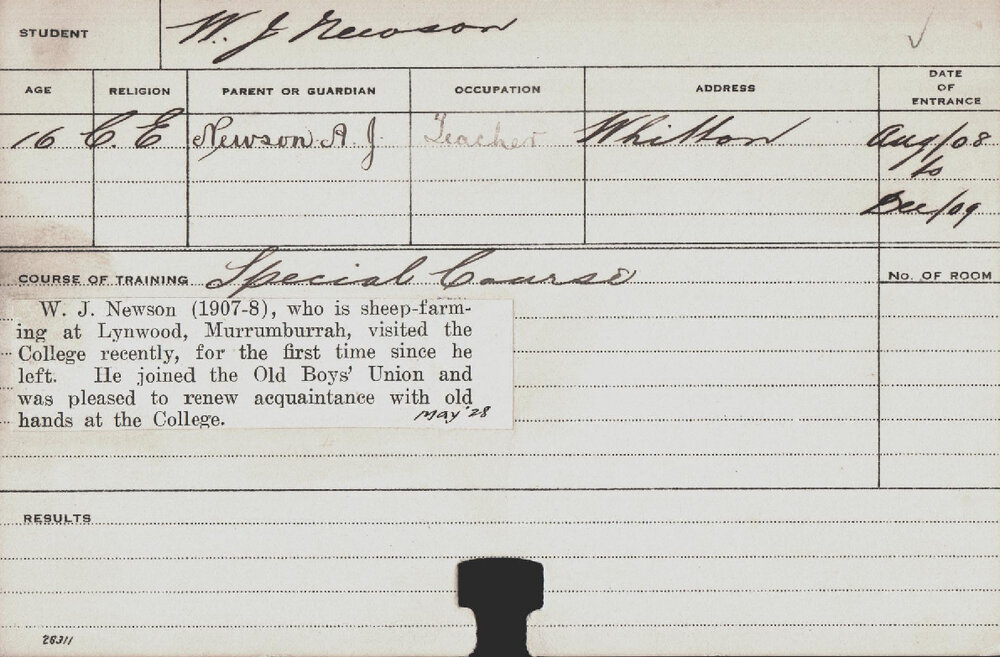 STUDENT W. J Newson ✓
AGE RELIGION PARENT OR GUARDIAN OCCUPATION ADDRESS DATE OF ENTRANCE
16 C. E Newson A. J. Teacher Whitton Aug/08
to
Dec/09
COURSE OF TRAINING Special Course No. OF ROOM
W. J. Newson (1907-8), who is sheep-farm-
ing at Lynwood, Murrumburrah, visited the
College recently, for the first time since he
left. He joined the Old Boys' Union and
was pleased to renew acquaintance with old
hands at the College. May '28
RESULTS
28311